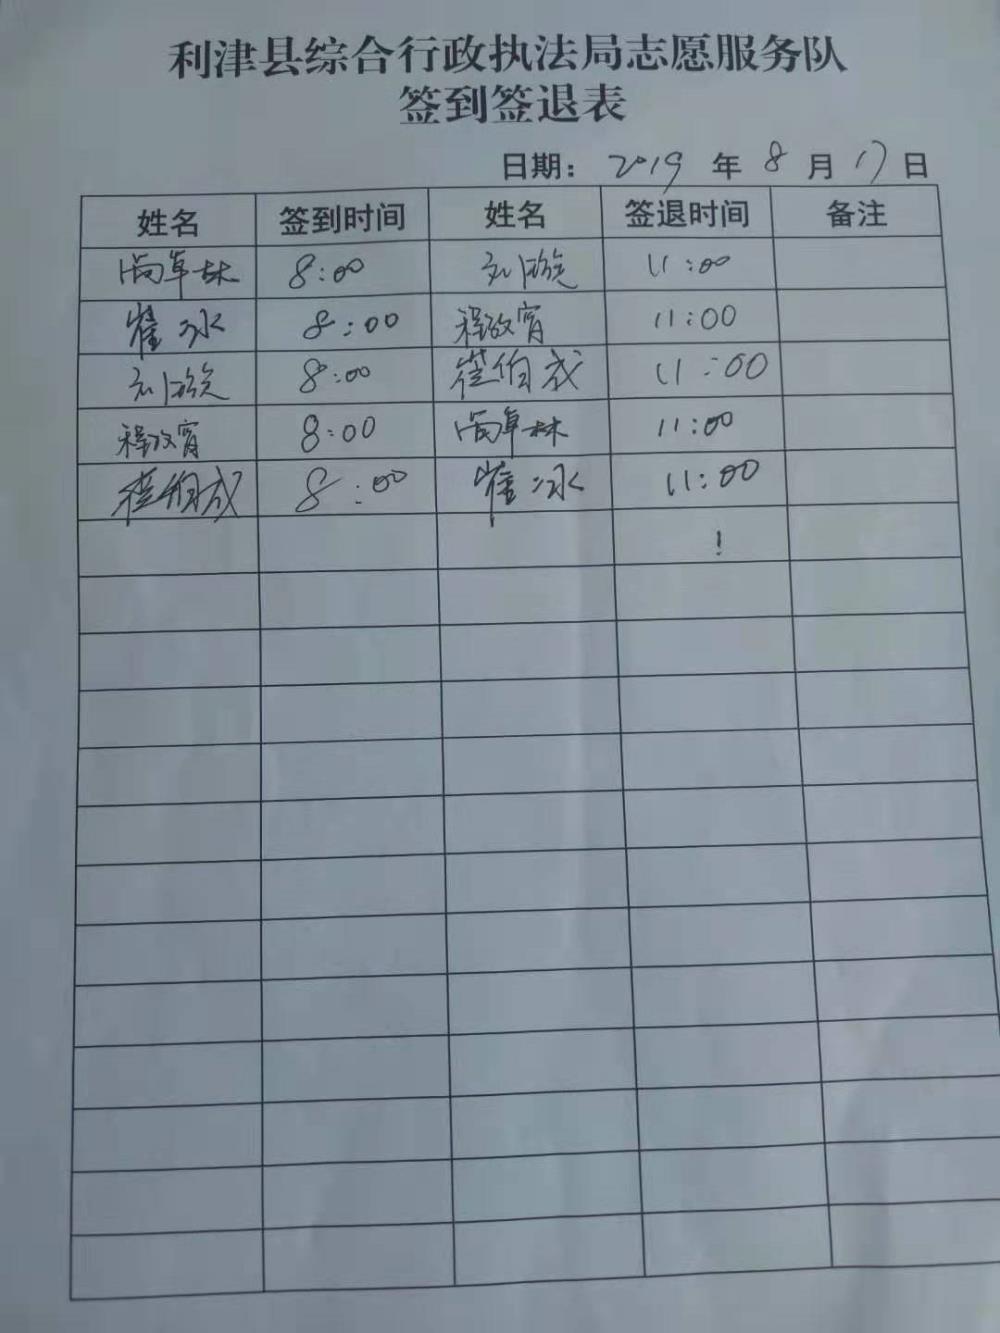 利津县综合行政执法局志愿服务队
签到签退表
日期： 2019 年 8 月 17 日
姓名 签到时间 姓名 签退时间 备注
尚卓林 8:00 刘 11:00
崔冰 8:00 程政宵 11:00
刘 8:00 崔伯成 11:00
程政宵 8:00 尚卓林 11:00
崔伯成 8:00 崔冰 11:00